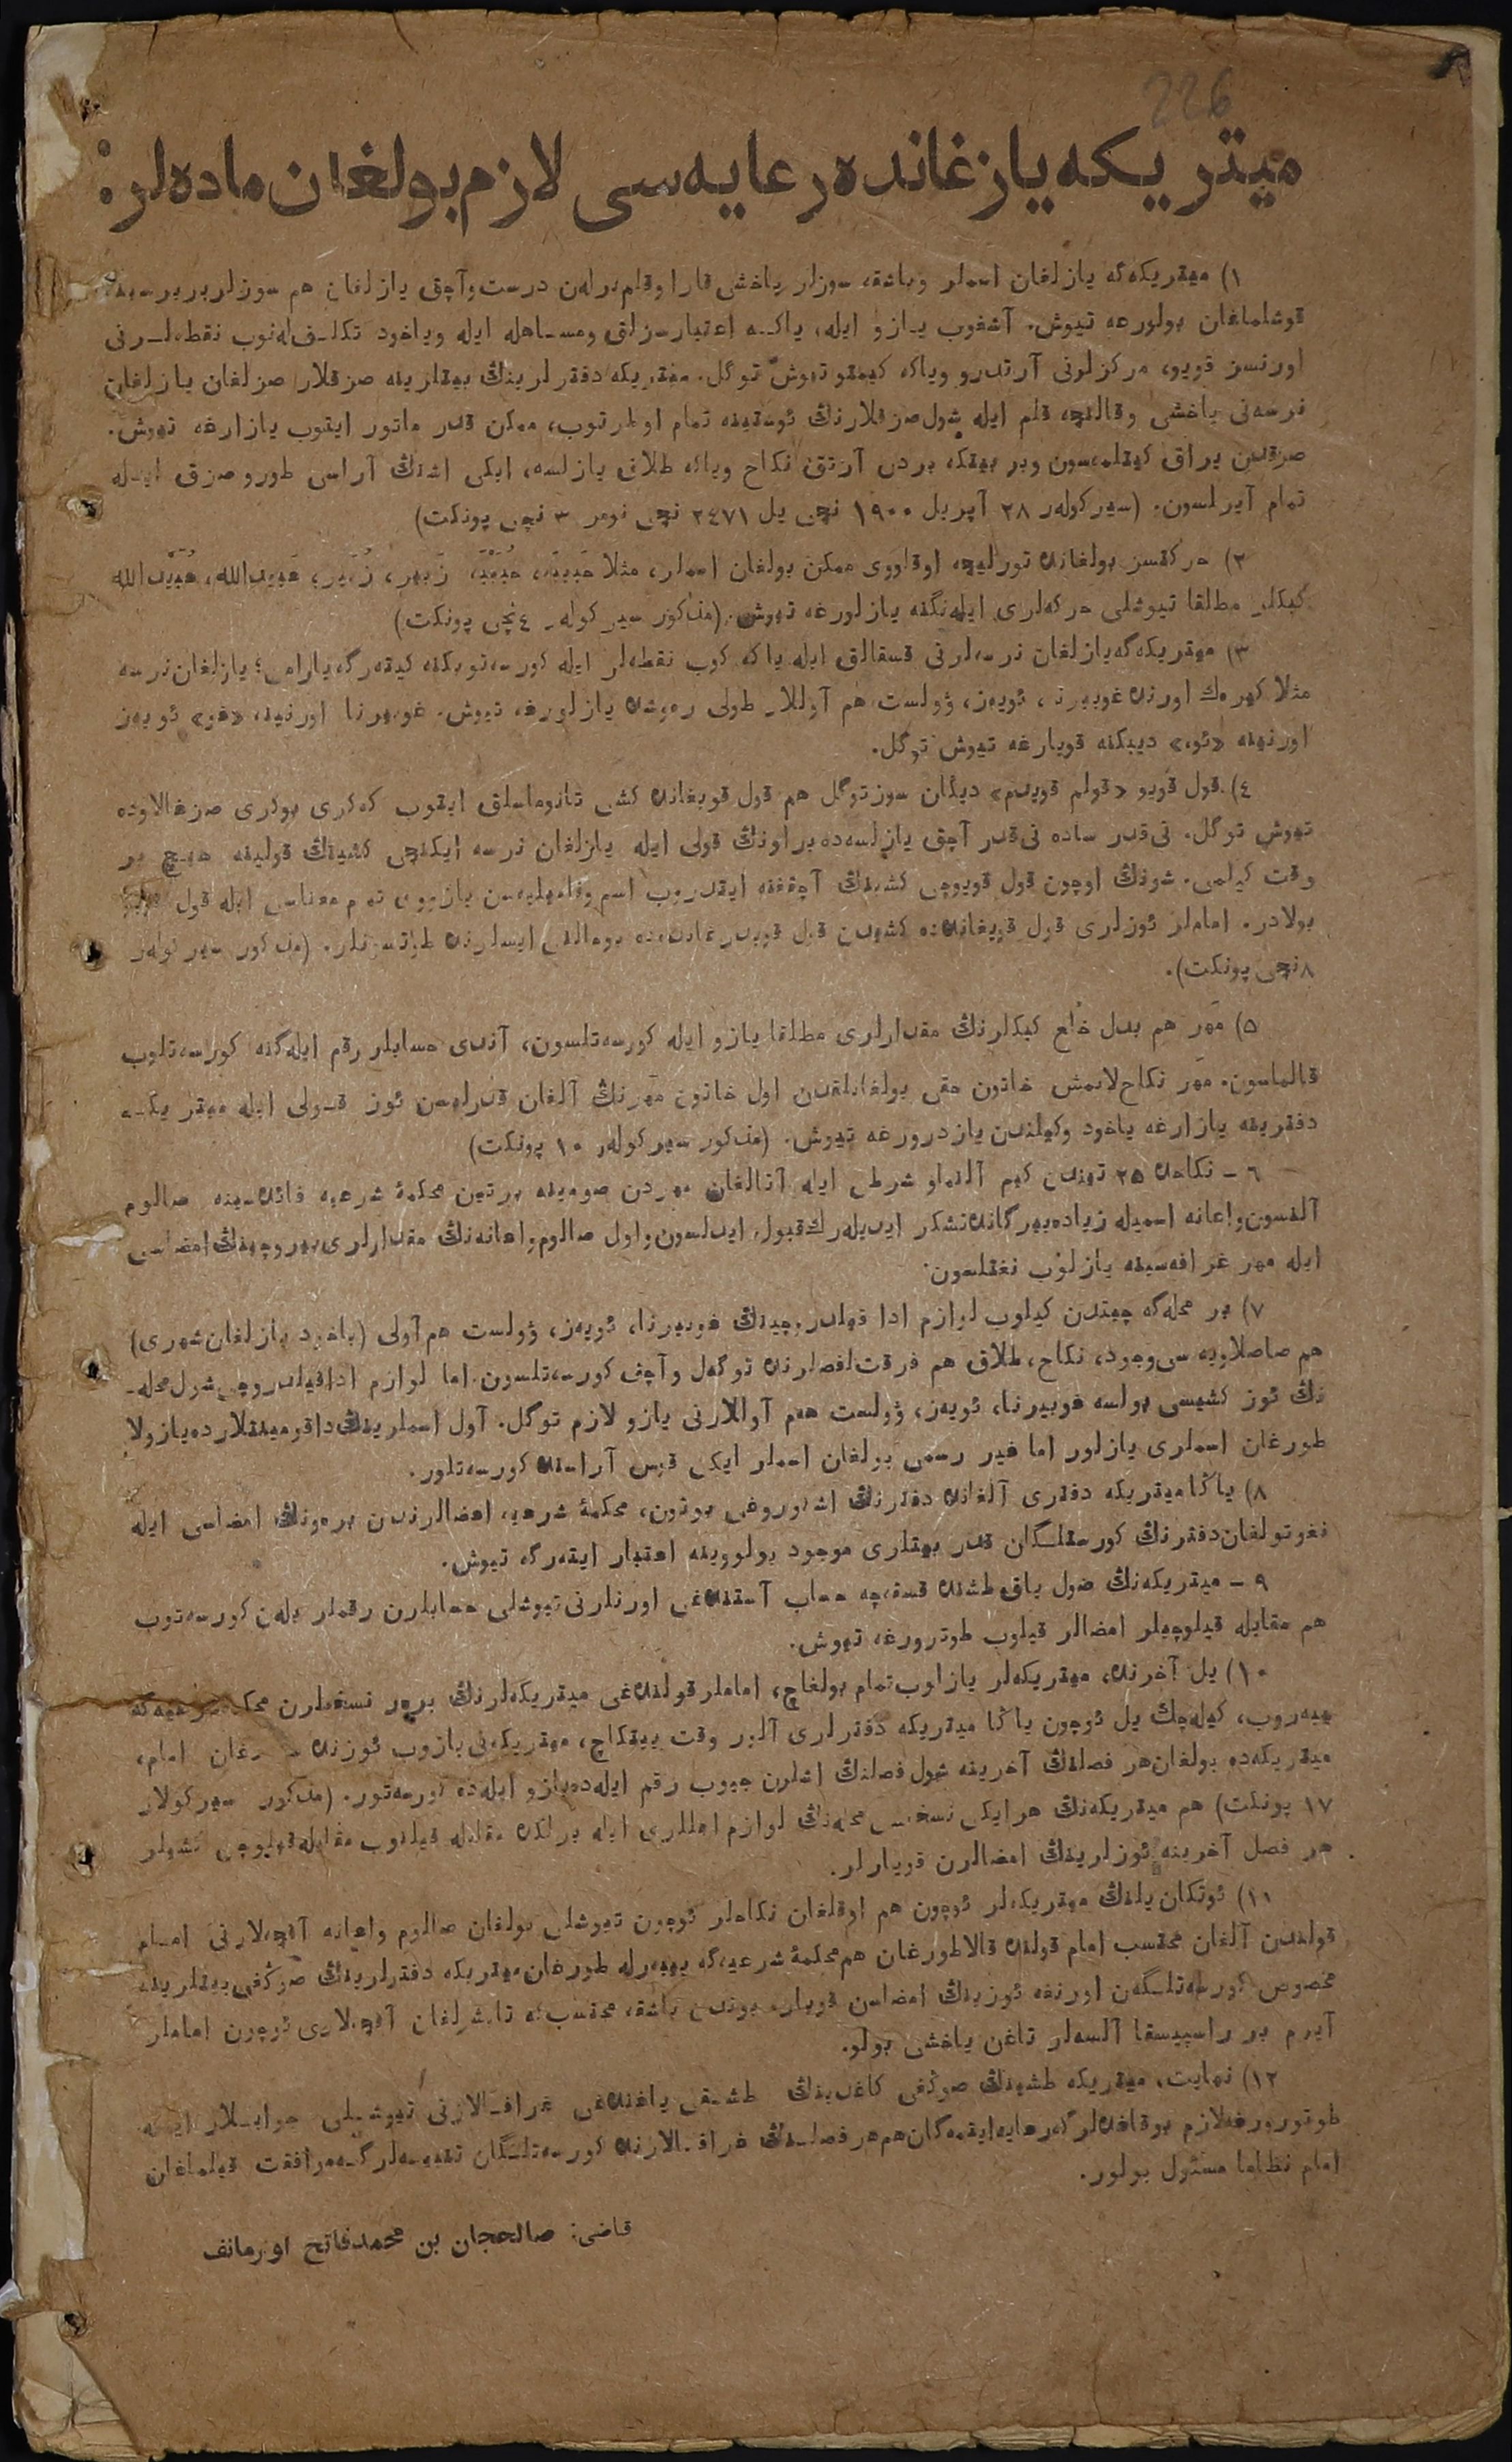 226
ميتريكه يازغانده رعايه سى لازم بولغان ماده‌لر:
١) ميتريكه‌گه يازلغان اسملر وباشقه سوزلر ياخشى قارا وقلم برله‌ن درست وآچق يازلغان هم سوزلر بربرسينه
قوشلماغان بولورغه تيوش. آشغوب يازو ايله، ياكه اعتبارسزلق ومساهله ايله وياخود تكلف‌له‌نوب نقطه‌لرنى
اورنسز قويو، مركزلرنى آرتدرو وياكه كيمتو تيوش توگل. ميتريكه دفترلرينڭ بيتلرينه صزقلار صزلغان يازلغان
نرسه‌نى ياخشى وقالنچه قلم ايله شول صزقلارنڭ ئوستينه تمام اولترتوب، ممكن قدر ماتور ايتوب يازارغه تيوش.
صزقدن يراق كيتلمه‌سون وبر بيتكه بردن آرتق نكاح وياكه طلاق يازلسه، ايكى اشنڭ آراسى طورو صزق ايله
تمام آيرلسون. (سيركولەر ٢٨ آپريل ١٩٠٠ نچى يل ٢٤٧١ نچى نومر ٣ نچى پونكت)
٢) حركتسز بولغانده تورليچه اوقلووى ممكن بولغان اسملر، مثلا حَبيبَه، حُبَيْبَه، زَبير، زُبَير، حَبيب‌الله، حُبَيْب‌الله
كبكلر مطلقا تيوشلى حركه‌لرى ايله‌نگنه يازلورغه تيوش. (مذكور سيركولەر ٤ نچى پونكت)
٣) ميتريكه‌گه يازلغان نرسه‌لرنى قسقالق ايله ياكه كوب نقطه‌لر ايله كورسه‌توبكنه كيته‌رگه يارامى؛ يازلغان نرسه
مثلا كيره‌ك اورنده غوبيرنا، ئويه‌ز، ؤولست هم آوللار طولى ره‌وشده يازلورغه تيوش. غوبيرنا اورنينه «غو» ئويه‌ز
اورنينه «ئو،» ديبكنه قويارغه تيوش توگل.
٤) قول قويو «قولم قويدم» ديگان سوز توگل هم قول قويغانده كشى تانوماسلق ايتوب كه‌كرى بوكرى صزغالاوده
تيوش توگل. نى قدر ساده نى قدر آچق يازلسه‌ده براونڭ قولى ايله يازلغان نرسه ايكنچى كشينڭ قولينه هيچ بر
وقت كيلمى. شونڭ اوچون قول قويوچى كشينڭ آچقغنه ايتدروب اسم وفاميليه‌سن يازووى تمام معناسى ايله قول قويو
بولادر. اماملر ئوزلرى قول قويغانده‌ده كشيدن قول قويدرغانده‌ده بوحالنى ايسلرنده طوتسونلر. (مذكور سيركولەر
٨ نچى پونكت).
٥) مَهر هم بدل خلع كبكلرنڭ مقدارلرى مطلقا يازو ايله كورسه‌تلسون، آندى حسابلر رقم ايله‌گنه كورسه‌تلوب
قالماسون. مَهر نكاح‌لانمش خاتون حقى بولغانلقدن اول خاتون مَهرنڭ آلغان قدرليسن ئوز قولى ايله ميتريكه
دفترينه يازارغه ياخود وكيلندن يازدرورغه تيوش. (مذكور سيركولەر ١٠ پونكت)
٦ – نكاحده ٢٥ تيندن كيم آلنماو شرطى ايله آتالغان مهردن صومينه برتين محكمهٔ شرعيه فائده‌سينه صالوم
آلنسون واعانه اسميله زياده بيرگانده تشكر ايديله‌رك قبول ايدلسون واول صالوم واعانه‌نڭ مقدارلرى بيروچينڭ امضاسى
ايله مهر غرافه‌سينه يازلوب نغتلسون.
٧) بر محله‌گه چيتدن كيلوب لوازم ادا قيلدروچينڭ غوبيرنا، ئويه‌ز، ؤولست هم آولى (ياخود يازلغان شهرى)
هم صاصلاويه‌سى وجود، نكاح، طلاق هم فرقت فصلرنده توگه‌ل وآچق كورسه‌تلسون. اما لوازم ادا قيلدروچى شول محله‌ـ
نڭ ئوز كشيسى بولسه غوبيرنا، ئويه‌ز، ؤولست هم آوللارنى يازو لازم توگل. آول اسملرينڭ داقومينتلارده يازولا
طورغان اسملرى يازلور اما غير رسمى بولغان اسملر ايكى قوس آراسنده كورسه‌تلور.
٨) ياڭا ميتريكه دفترى آلغانده دفترنڭ اشنوروغى بوتون، محكمهٔ شرعيه اعضالرندن بره‌ونڭ امضاسى ايله
نغوتولغان دفترنڭ كورستلگان قدر بيتلرى موجود بولووينه اعتبار ايته‌رگه تيوش.
٩ – ميتريكه‌نڭ صول ياق طشنده قسقه‌چه حساب آستنده‌غى اورنلرنى تيوشلى حسابلرن رقملر بله‌ن كورسه‌توب
هم مقابله قيلوچيلر امضالر قيلوب طوتورورغه تيوش.
١٠) يل آخرنده، ميتريكه‌لر يازلوب تمام بولغاچ، اماملر قولنده‌غى ميتريكه‌لرنڭ برەر نسخه‌لرن محكمهٔ شرعيه‌گه
ييبه‌روب، كيله‌چك يل ئوچون ياڭا ميتريكه دفترلرى آلور وقت ييتكاچ، ميتريكه‌نى يازوب ئوزنده طورغان امام،
ميتريكه‌ده بولغان هر فصلنڭ آخرينه شول فصلنڭ اشلرن جيوب رقم ايله‌ده يازو ايله‌ده كورسه‌تور. (مذكور سيركولار
١٧ پونكت) هم ميتريكه‌نڭ هر ايكى نسخه‌سى محله‌نڭ لوازم اهللرى ايله برلكده مقابله قيلنوب مقابله قيلوچى كشيلر
هر فصل آخرينه ئوزلرينڭ امضالرن قويارلر.
١١) ئوتكان يلنڭ ميتريكه‌لر ئوچون هم اوقلغان نكاحلر ئوچون تيوشلى بولغان صالوم واعانه آقچه‌لارنى امام
قولندن آلغان محتسب امام قولنده قالاطورغان هم محكمهٔ شرعيه‌گه ييبه‌رله طورغان ميتريكه دفترلرينڭ صوڭغى بيتلرينه
مخصوص كورسه‌تلگه‌ن اورنغه ئوزينڭ امضاسن قويار. بوندن باشقه محتسب‌كه تابشرلغان آقچه‌لارى ئوچون اماملر
آيرم بر راسپيسقا آلسه‌لر تاغن ياخشى بولو.
١٢) نهايت، ميتريكه طشينڭ صوڭغى كاغدينڭ طشقى ياغنده‌غى غرافالارنى تيوشلى جوابلار ايله
طوتورورغه لازم بوقاعده‌لرگه رعايه ايتمه‌گان هم هر فصلنڭ غرافالارنده كورسه‌تلگان تنبيهلرگه موافقت قيلماغان
امام نظاما مسئول بولور.
قاضى: صالحجان بن محمدفاتح اورمانف